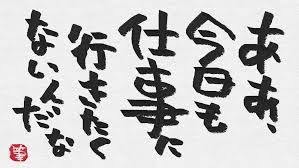 ああ、
今日も
仕事に
行きたく
ないんだな